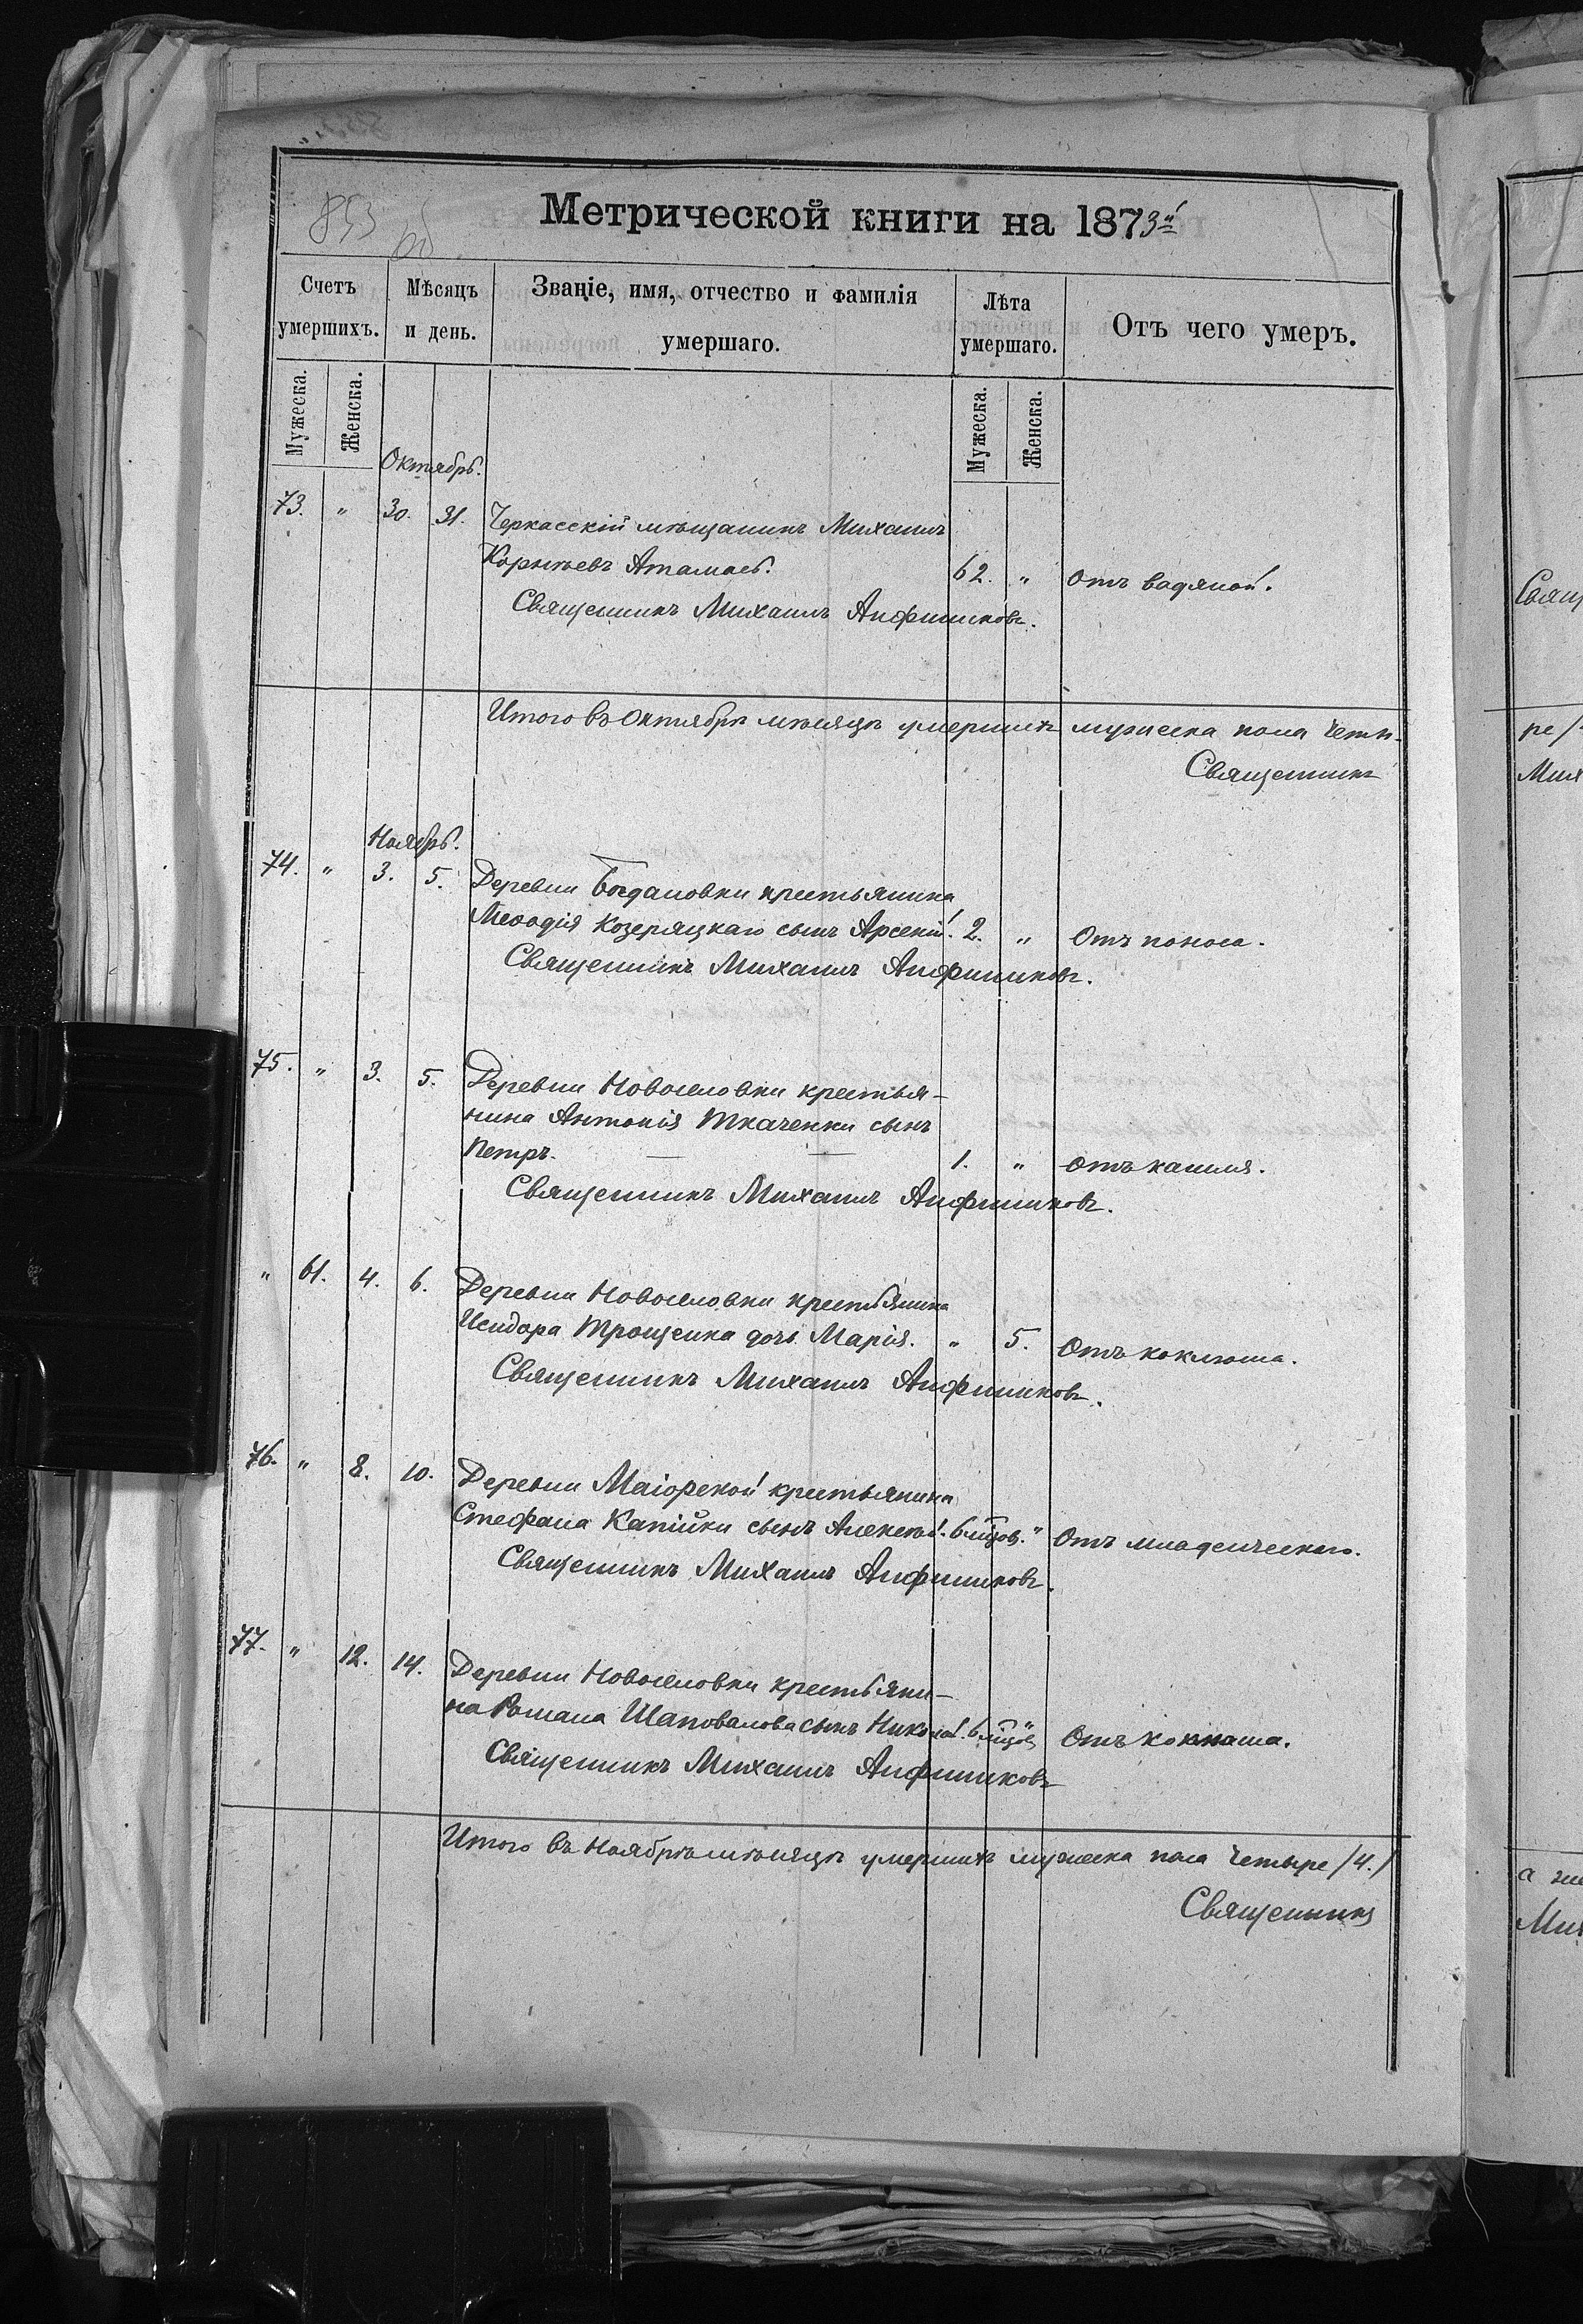 853 об
Метрической книги на 1873й
Счетъ умершихъ.
Мѣсяцъ и день.
Званіе, имя, отчество и фамилія умершаго.
Лѣта умершаго.
Отъ чего умеръ.
Мужеска.
Женска.
Мужеска.
Женска.
Октябрь.
73. " 30. 31. Черкасскій мѣщанинъ Михаилъ
Корнѣевъ Атамась. 62. " Отъ водяной.
Священникъ Михаилъ Анфиниковъ.
Итого въ Октябрѣ мѣсяцѣ умершихъ мужеска пола Четы-
Священникъ
Ноябрь.
74. " 3. 5. Деревни Богдановки крестьянина
Меѳодія Козеряцкаго сынъ Арсеній. 2. " Отъ поноса.
Священникъ Михаилъ Анфиниковъ.
75. " 3. 5. Деревни Новоселовки крестья-
нина Антонія Ткаченки сынъ
Петръ. 1. " Отъ кашля.
Священникъ Михаилъ Анфиниковъ.
" 61. 4. 6. Деревни Новоселовки крестьянина
Исидора Трощенка дочь Марія. " 5. Отъ коклюша.
Священникъ Михаилъ Анфиниковъ.
76. " 8. 10. Деревни Маіорской крестьянина
Стефана Капійки сынъ Алексѣй. 6 мцов. " Отъ младенческаго.
Священникъ Михаилъ Анфиниковъ.
77. " 12. 14. Деревни Новоселовки крестьяни-
на Романа Шаповалова сынъ Николай. 6 мцов. " Отъ коклюша.
Священникъ Михаилъ Анфиниковъ
Итого въ Ноябрѣ мѣсяцѣ умершихъ мужеска пола Четыре /4./
Священникъ
Свящ
ре/
Мих
а же
Мих